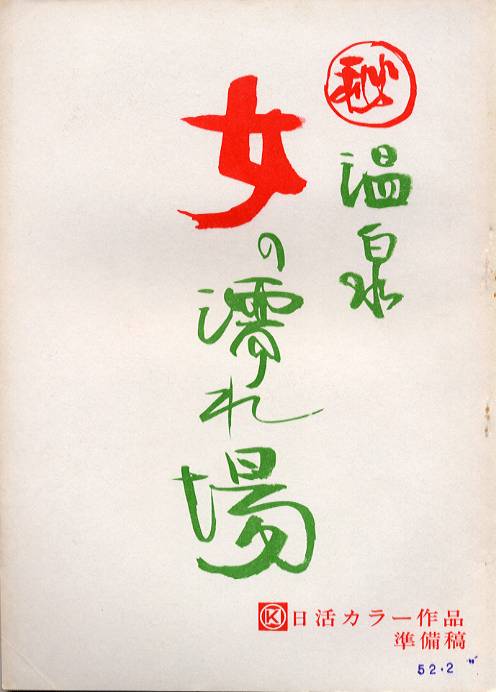 ㊙温泉
女の濡れ場
K日活カラー作品
準備稿
52.2 〃